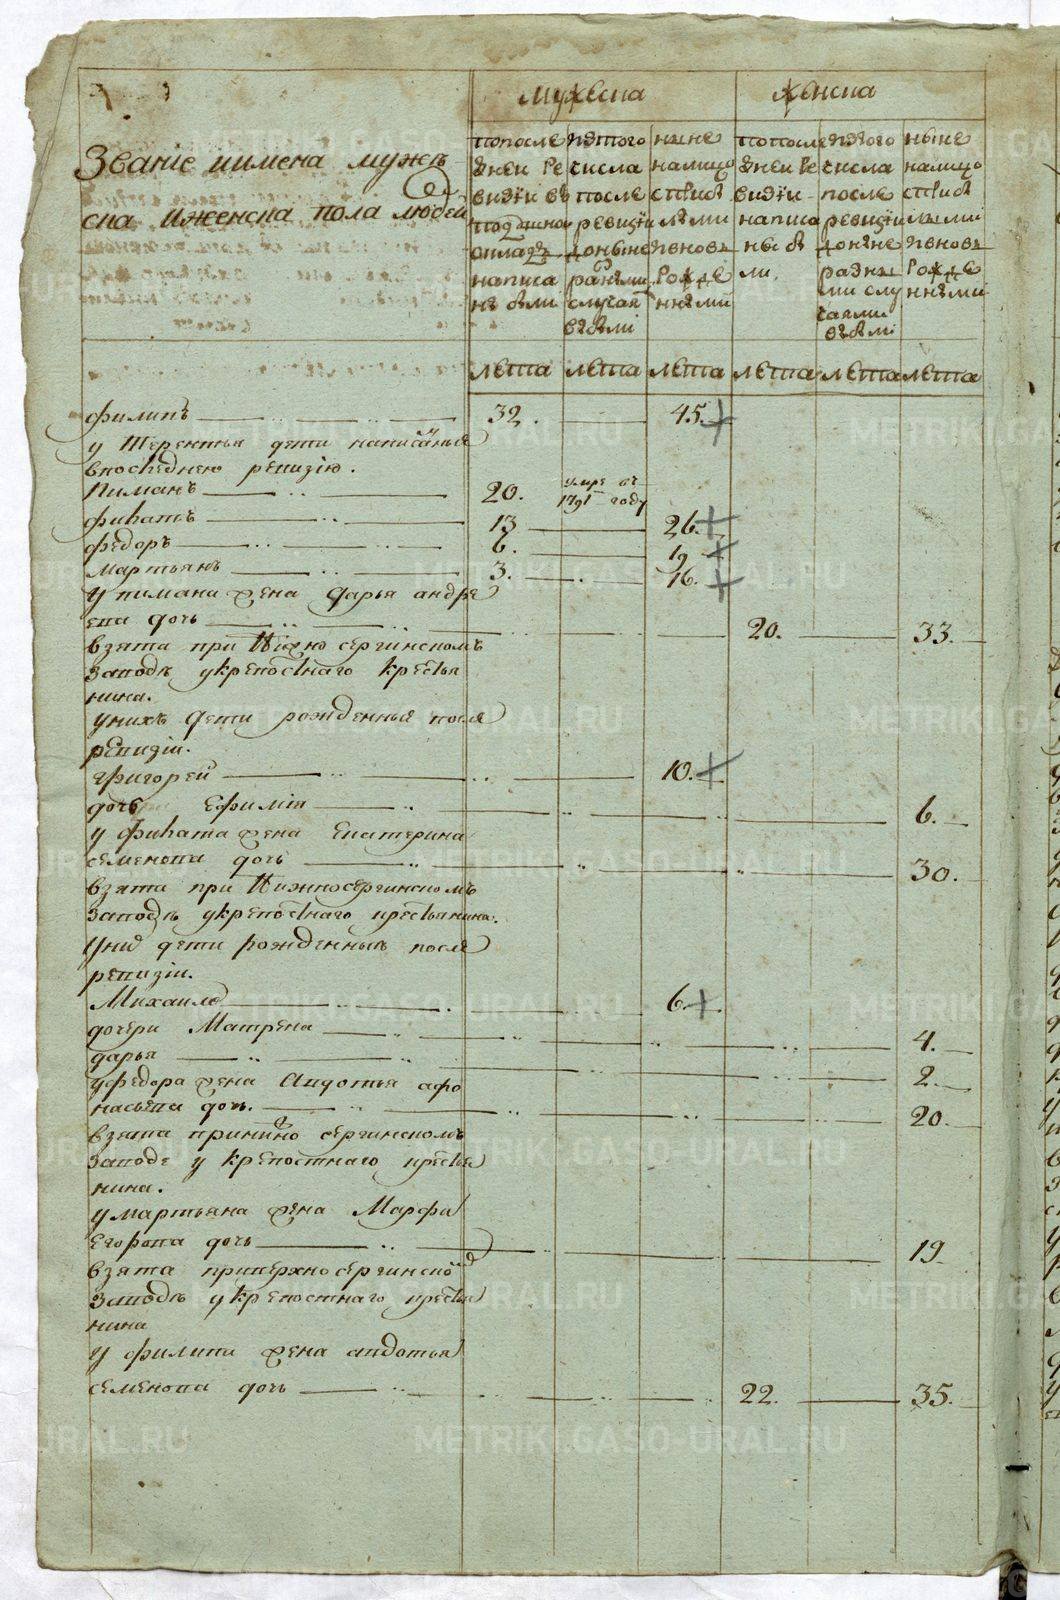 Званіе иимена мужеска иженска пола людей
мужеска
женска
попоследнеи Ревизіи въ подушнои окладъ написанъ были
изтого числа после ревизіи доныне разными случаи выбыли
ныне налицо состаитъ лѣтами и вновь рожденными
попоследнеи Ревизіи написаны были.
изтого числа после ревизіи доныне разными случаями выбыли
ныне налицо состаитъ летами и вновь рожденными
лета лета лета лета лета лета
филипъ 32. 45.
у терентья дети написаныя
впоследнею ревизію.
Пиманъ 20. умре въ 1791 году
филатъ 13 26.
федоръ 6. 19
мартьянъ 3. 16.
У пимана жена дарья андре
ева дочь 20. 33.
взята при Нижно сергинскомъ
заводѣ укрепостнаго крестья
нина.
унихъ дети рожденныя после
ревизіи.
григорей 10.
дочь Ефимія 6.
у филата жена Екатерина
семенова дочь 30.
взята при Нижносергинскомъ
заводѣ укрепостнаго крестьянина.
Уних дети рожденныя после
ревизіи.
Михаило 6.
дочери Матрена 4.
дарья 2.
уфедора жена Авдотья афо
насьева дочь. 20.
взята принижно сергинскомъ
заводе у крепостнаго крестья
нина.
умартьяна жена Марфа
Егорова дочь 19
взята приверхно сергинской
заводѣ укрепостнаго крестья
нина
у филипа жена авдотья
семенова дочь 22. 35.
METRIKI.GASO-URAL.RU